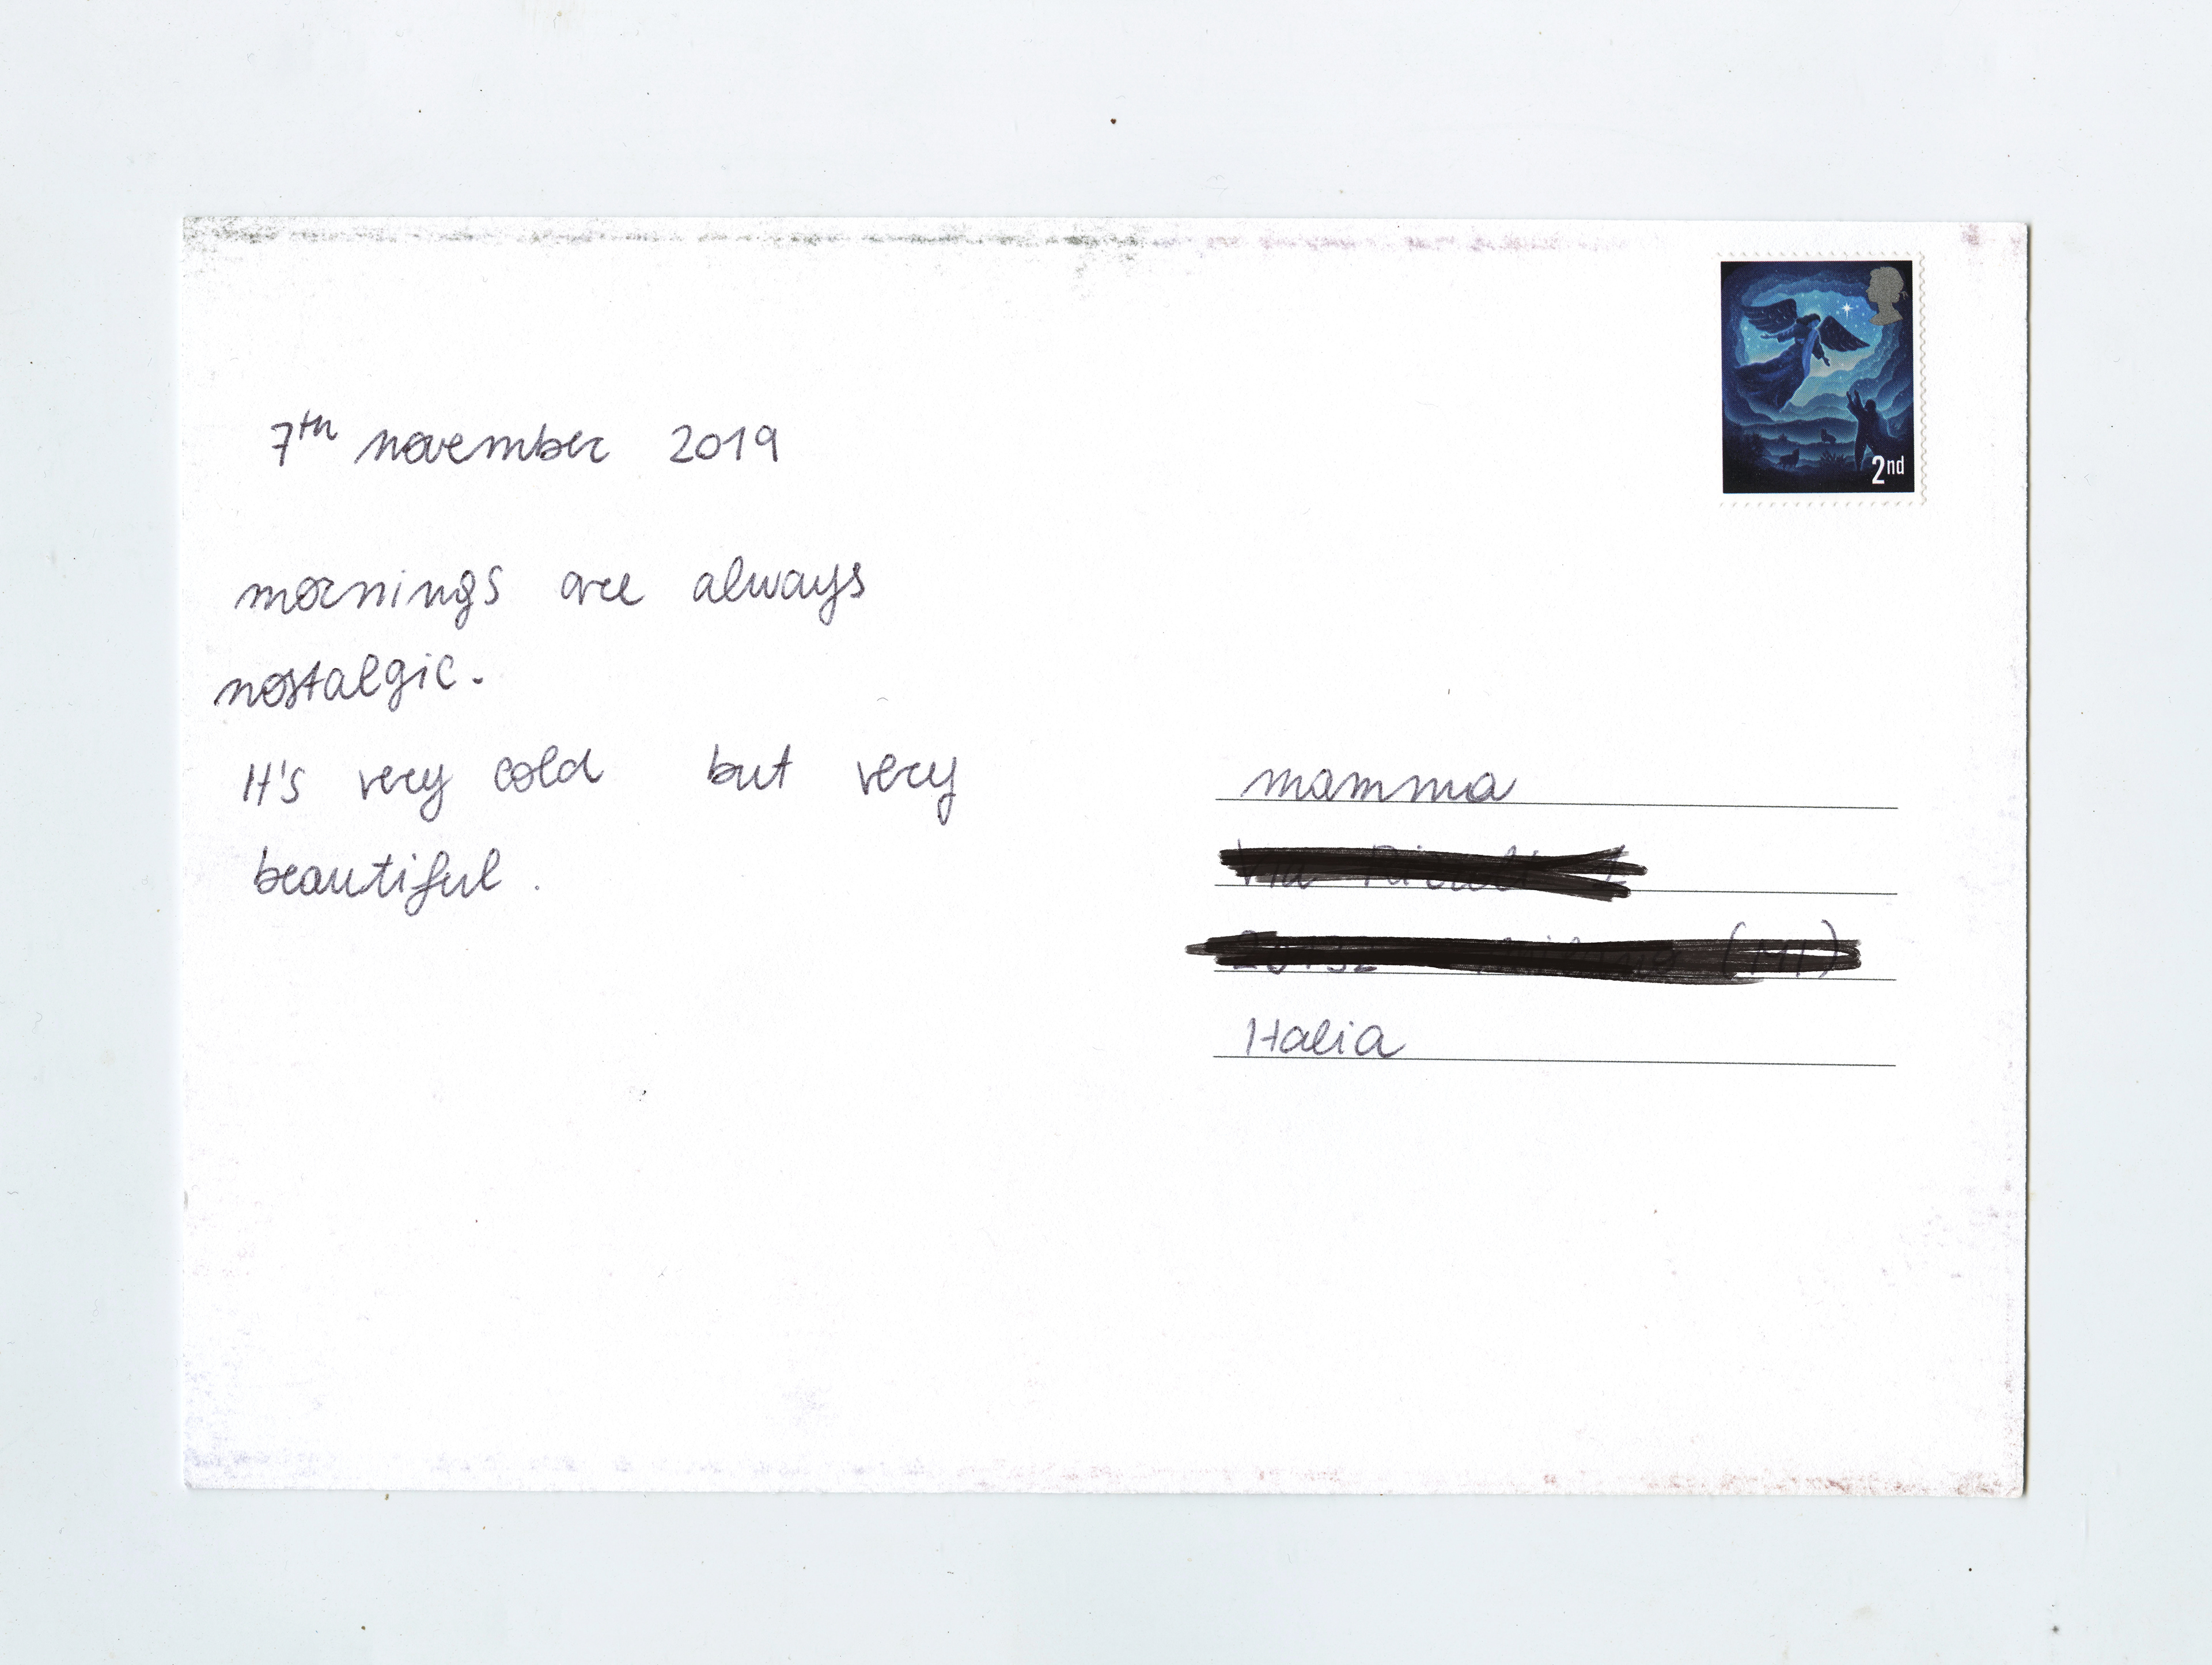 7th november 2019
mornings are always
nostalgic.
It's very cold but very
beautiful.
2nd
mamma
Italia